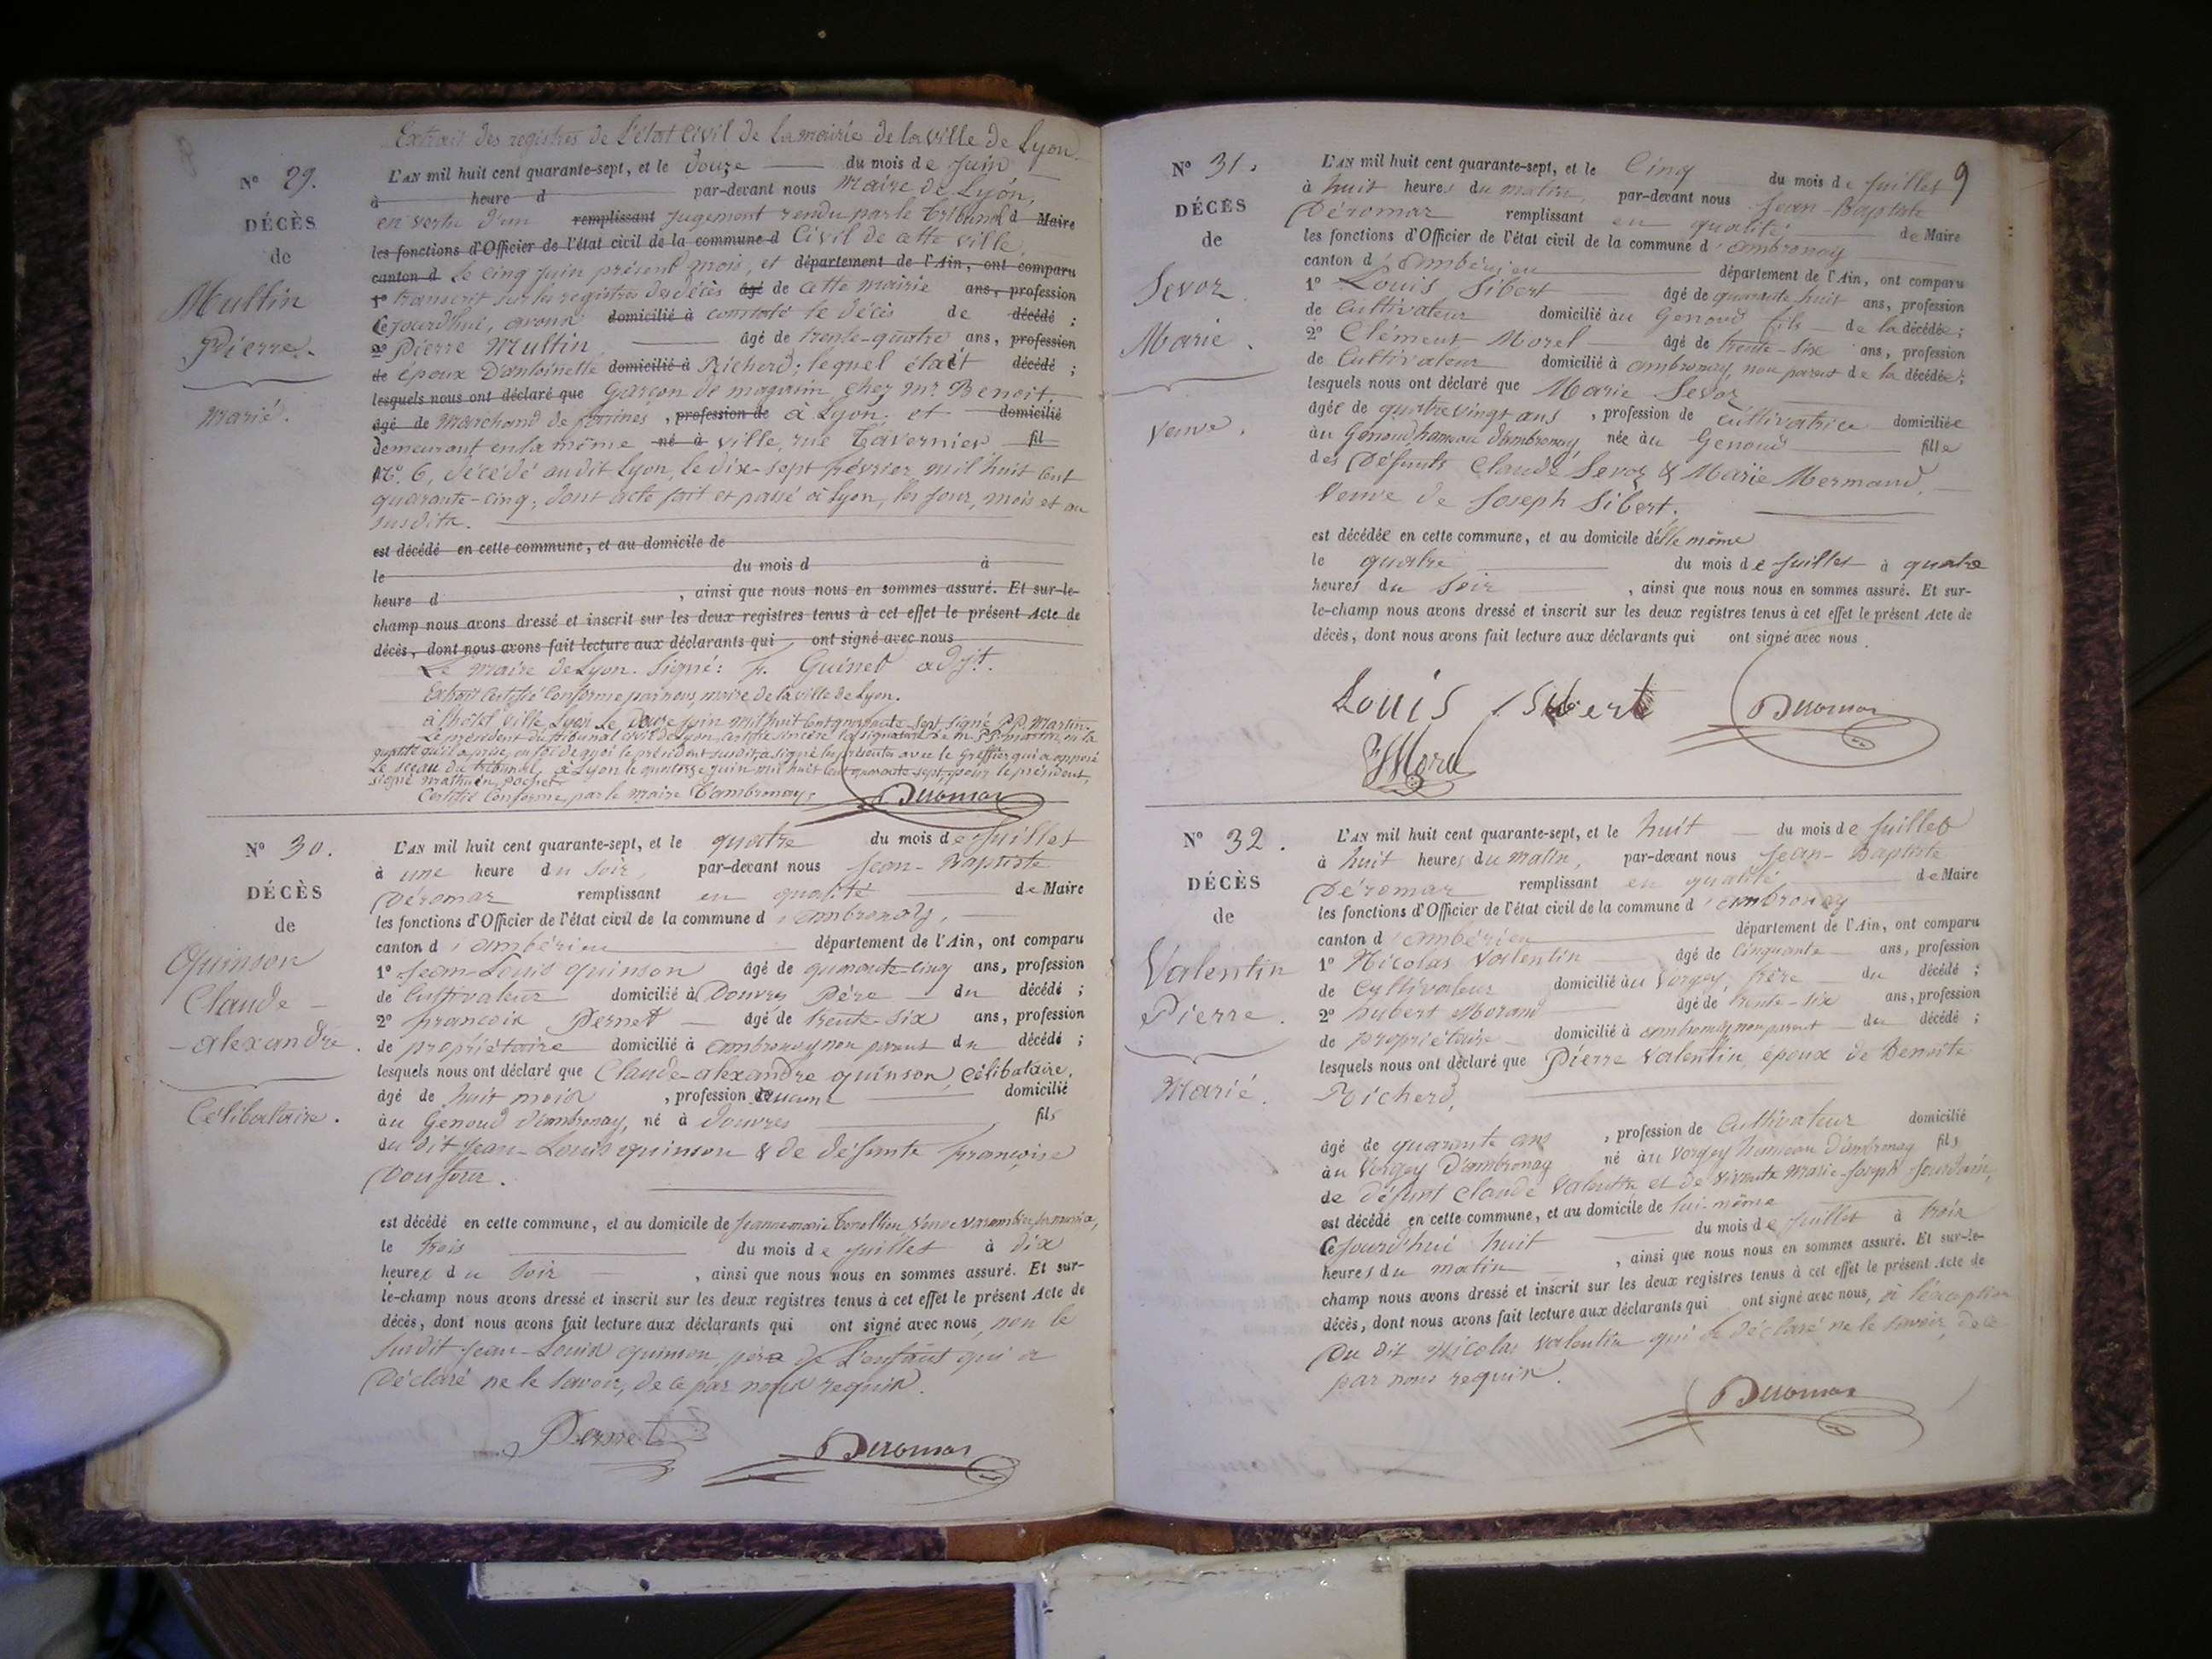 Extrait des registres de l'état Civil de la mairie de la ville de Lyon.
Nº 29.
DÉCÈS
de
Multin
Pierre.
Marié.
L'AN mil huit cent quarante-sept, et le Douze du mois de Juin
à heure d par-devant nous Maire de Lyon,
en vertu d'un remplissant jugement rendu par le tribunal d Maire
les fonctions d'Officier de l'état civil de la commune d Civil de cette ville
canton d le cinq juin présent mois, et département de l'Ain, ont comparu
1º transcrit sur les registres des décès âgé de cette mairie ans, profession
Cejourd'hui, avons domicilié à constaté le décès de décédé ;
2º Pierre Multin âgé de trente-quatre ans, profession
de époux D'antoinette domicilié à Richerd ; lequel était décédé ;
lesquels nous ont déclaré que Garçon de magasin chez Mr. Benoit,
âgé de marchand de farines , profession de à Lyon. et domicilié
demeurant en la même né à ville, rue Tavernier fil
Nº. 6, décédé audit Lyon, le dix-sept février mil huit cent
quarante-cinq ; dont acte fait et passé à Lyon, les jour, mois et an
susdits.
est décédé en cette commune, et au domicile de
le du mois d à
heure d , ainsi que nous nous en sommes assuré. Et sur-le-
champ nous avons dressé et inscrit sur les deux registres tenus à cet effet le présent Acte de
décès, dont nous avons fait lecture aux déclarants qui ont signé avec nous
Le maire de Lyon. Signé : F. Guinet adjt.
Extrait Certifié Conforme par nous, maire de la ville de Lyon.
à l'hôtel ville Lyon Le Douze juin mil huit cent quarante-sept signé P.P. Martin.
Le président du tribunal civil de Lyon, certifie sincère la signature de M. P.P. Martin, en la
qualité qu'il a prise, en foi de quoi le président susdit, a signé les présentes avec le Greffier qui a apposé
le sceau du tribunal, à Lyon le quatorze juin mil huit cent quarante-sept, pour le président,
signé
Certifié Conforme, par le Maire d'ambronay,
Deromas
Nº 30.
DÉCÈS
de
Quinson
Claude-
-alexandre.
Célibataire.
L'AN mil huit cent quarante-sept, et le quatre du mois de Juillet
à une heure du soir, par-devant nous Jean-Baptiste
Déromas remplissant en qualité de Maire
les fonctions d'Officier de l'état civil de la commune d'ambronay,
canton d'ambérieu département de l'Ain, ont comparu
1º Jean-Louis quinson âgé de quarante-cinq ans, profession
de Cultivateur domicilié à Douvres Père du décédé ;
2º françois Pernet âgé de trente-six ans, profession
de propriétaire domicilié à ambronay non parent du décédé ;
lesquels nous ont déclaré que Claude-alexandre quinson, célibataire,
âgé de huit mois , profession d'aucune domicilié
au Genoud d'ambronay, né à Douvres fils
du dit Jean-Louis quinson & de défunte françoise
Doufour.
est décédé en cette commune, et au domicile de Jeanne-marie
le trois du mois de juillet à dix
heures du soir , ainsi que nous nous en sommes assuré. Et sur-
le-champ nous avons dressé et inscrit sur les deux registres tenus à cet effet le présent Acte de
décès, dont nous avons fait lecture aux déclarants qui ont signé avec nous, non le
susdit Jean-Louis quinson, père de l'enfant qui a
Déclaré ne le savoir, de ce par nous requis.
Pernet Deromas
9
Nº 31.
DÉCÈS
de
Sevoz
Marie.
Veuve.
L'AN mil huit cent quarante-sept, et le Cinq du mois de Juillet
à huit heures du matin, par-devant nous Jean-Baptiste
Déromas remplissant en qualité de Maire
les fonctions d'Officier de l'état civil de la commune d'ambronay
canton d'ambérieu département de l'Ain, ont comparu
1º Louis Sibert âgé de quarante huit ans, profession
de Cultivateur domicilié au Genoud fils de la décédée ;
2º Clément Morel âgé de trente-six ans, profession
de Cultivateur domicilié à ambronay, non parent de la décédée ;
lesquels nous ont déclaré que Marie Sevoz
âgée de quatre vingt ans , profession de Cultivatrice domiciliée
au Genoud hameau d'ambronay née au Genoud fille
des Défunts Claude Sevoz & Marie Mermand,
Veuve de Joseph Sibert.
est décédée en cette commune, et au domicile d'elle même
le quatre du mois de Juillet à quatre
heures du Soir , ainsi que nous nous en sommes assuré. Et sur-
le-champ nous avons dressé et inscrit sur les deux registres tenus à cet effet le présent Acte de
décès, dont nous avons fait lecture aux déclarants qui ont signé avec nous.
Louis Sibert Deromas
Morel
Nº 32.
DÉCÈS
de
Valentin
Pierre.
Marié.
L'AN mil huit cent quarante-sept, et le huit du mois de Juillet
à huit heures du matin, par-devant nous Jean-Baptiste
Déromas remplissant en qualité de Maire
les fonctions d'Officier de l'état civil de la commune d'ambronay
canton d'ambérieu département de l'Ain, ont comparu
1º Nicolas Valentin âgé de Cinquante ans, profession
de Cultivateur domicilié au Vorgey, frère du décédé ;
2º hubert Morand âgé de trente-six ans, profession
de propriétaire domicilié à ambronay non parent du décédé ;
lesquels nous ont déclaré que Pierre Valentin, époux de Benoite
Richerd,
âgé de quarante ans , profession de Cultivateur domicilié
au Vorgey D'ambronay né au Vorgey hameau D'ambronay fils
de défunt Claude Valentin et de vivante Marie-Joseph Jourdain,
est décédé en cette commune, et au domicile de lui-même
Cejourd'hui huit du mois de juillet à trois
heures du matin , ainsi que nous nous en sommes assuré. Et sur-le-
champ nous avons dressé et inscrit sur les deux registres tenus à cet effet le présent Acte de
décès, dont nous avons fait lecture aux déclarants qui ont signé avec nous, à l'exception
Du dit Nicolas Valentin qui a déclaré ne le savoir, de ce
par nous requis.
Deromas